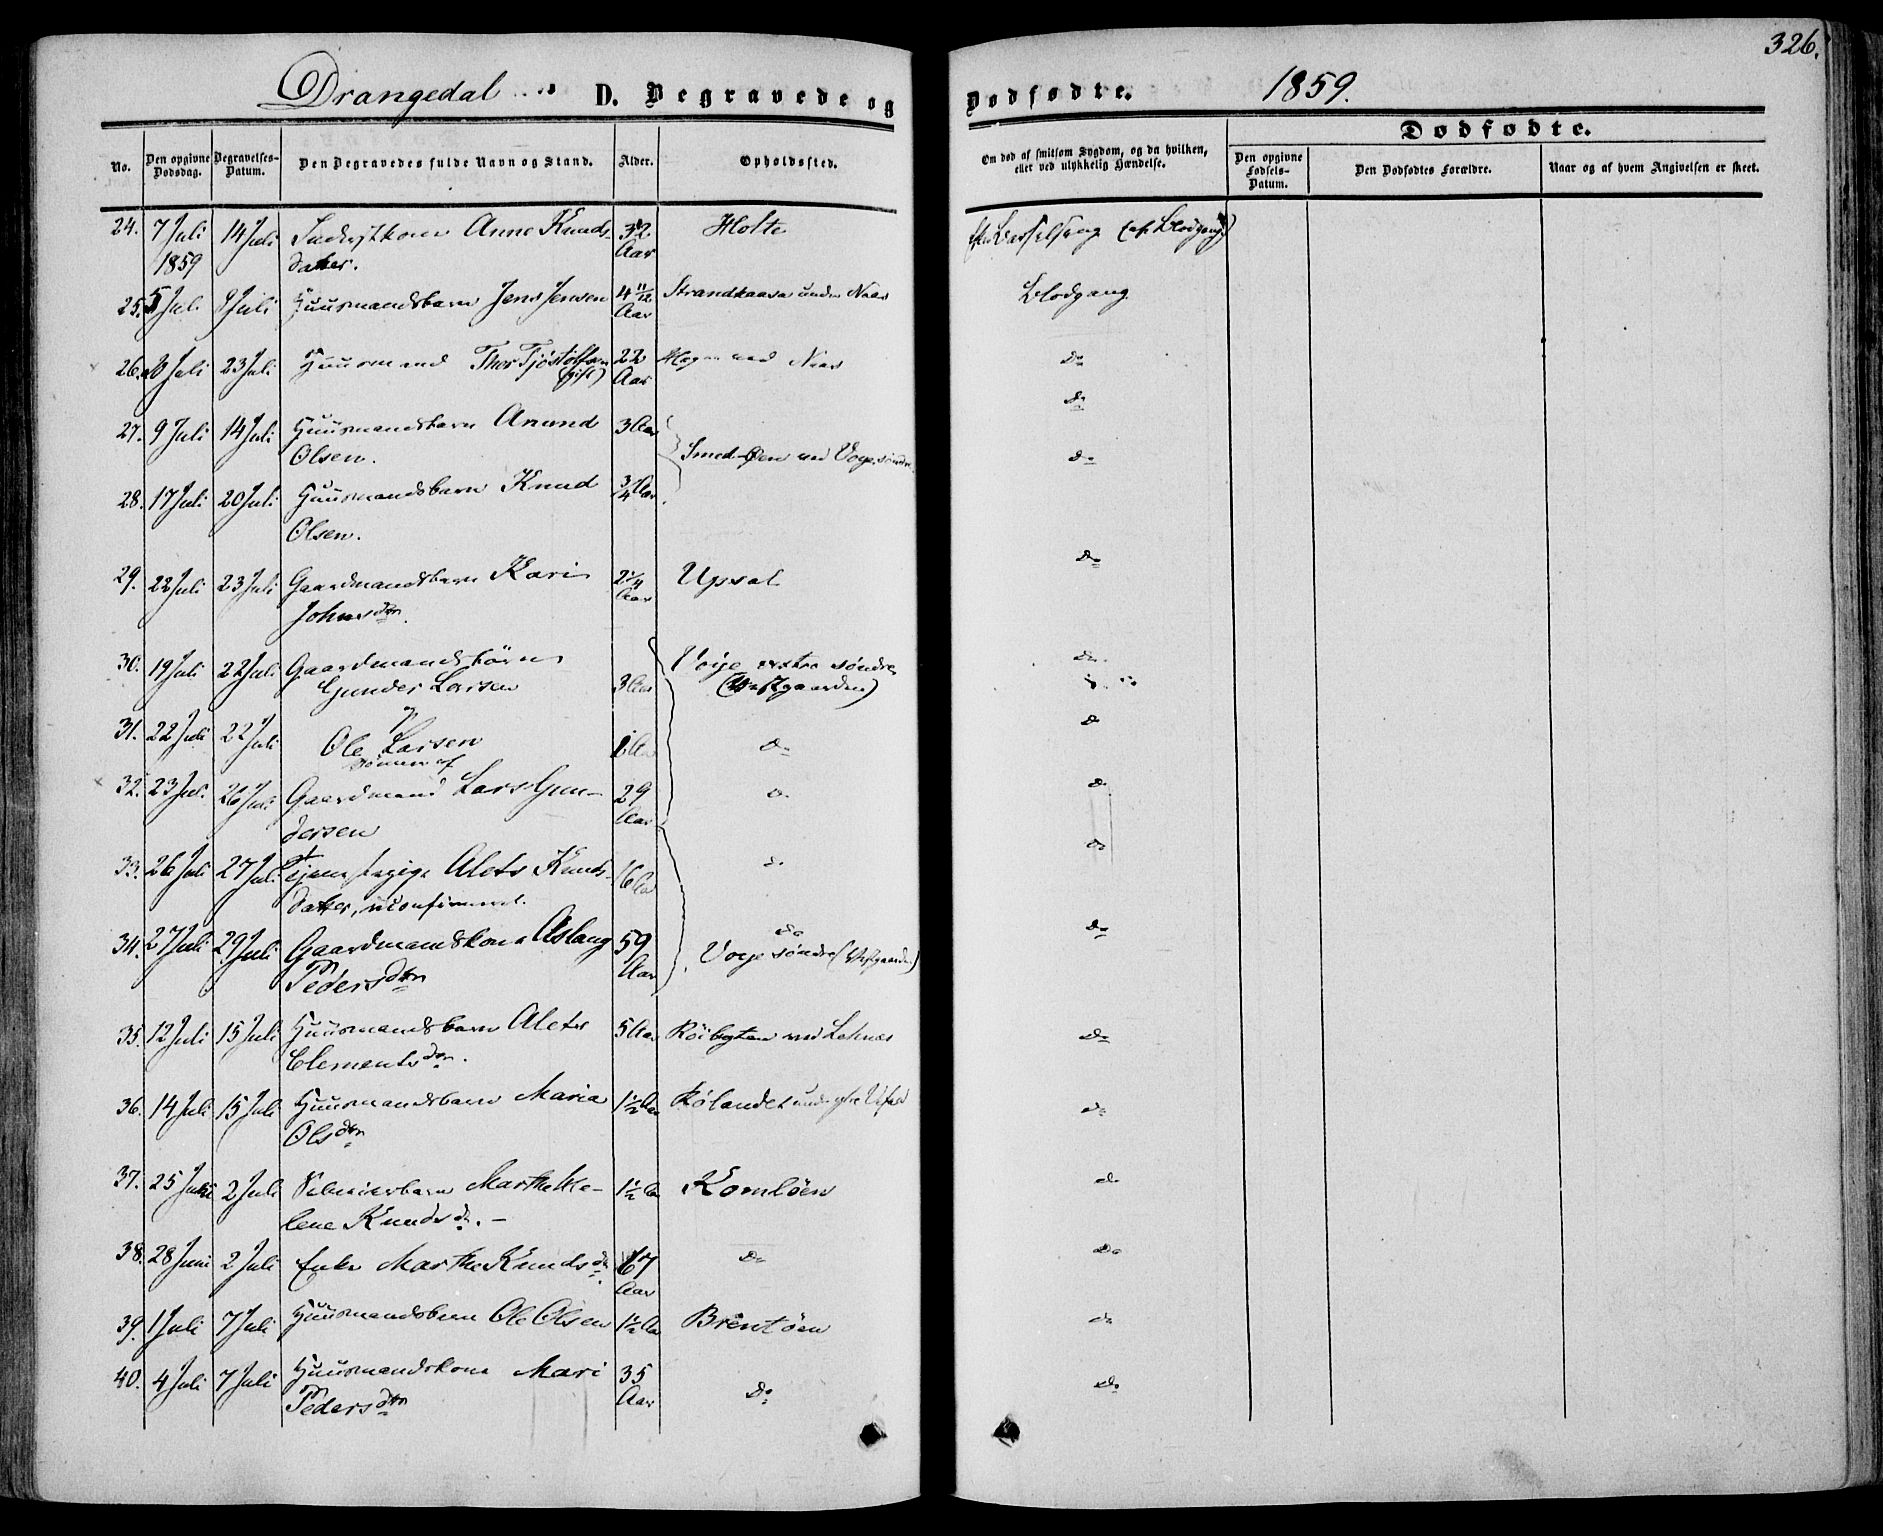 326.
Drangedal
D. Begravede og Dødfødte. 1859.
No.
Den opgivne Dødsdag.
Begravelses-Datum.
Den Begravedes fulde Navn og Stand.
Alder.
Opholdssted.
Om død af smitsom Sygdom, og da hvilken, eller ved ulykkelig Hændelse.
Dødfødte.
Den opgivne Fødsels-Datum.
Den Dødfødtes Forældre.
Naar og af hvem Angivelsen er skeet.
24. 7 Juli 14 Juli Anne Knuds- 32 Holte
1859 datter. Aar
25. 5 Juli 8 Juli Huusmandsbarn Jens Jensen 4 11/12 Strandkaasa under Naas Blodgang
Aar
26. Juli 23 Juli Huusmand Thor Tjøstolfsen 22 Naas do
(gift) Aar
do
27. 9 Juli 14 Juli Huusmandsbarn Anund 3 Aar
Olsen. Smed-Øen ved Voje søndre do
28. 17 Juli 20 Juli Huusmandsbarn Knud 3/4 Aar
Olsen.
29. 22 Juli 23 Juli Gaardmandsbarn Kari 2 1/4 Upsal do
Johnsdtr. Aar
30. 19 Juli 22 Juli Gaardmandsbørn Voje søndre do
Gunder Larsen 3 Aar (Vestgaarden)
og
31. 22 Juli 22 Juli Ole Larsen 1 Aar do do
sønner af
32. 23 Jul. 26 Juli Gaardmand Lars Gun- 29 do do
dersen Aar
33. 26 Juli 27 Jul. Tjenestepige Alets Knuds- 16 Aar do do
datter, uconfirmeret.
34. 27 Juli 29 Juli Gaardmandskone Aslaug 59 do do
Pedersdtr Aar Voje søndre (Vestgaarden)
35. 12 Juli 15 Juli Huusmandsbarn Alets 5 Aar Röibygten ved Lehnes do
Clementsdtr.
36. 14 Juli 15 Juli Huusmandsbarn Maria 1 1/2 Aar Rølandet under do
Olsdtr
37. 25 Juni 2 Juli Marthe He- 1 1/2 Aar Komløen do
lene Knudsd. –
38. 28 Juni 2 Juli Enke Marthe Knudsd. 67 do do
Aar
39. 1 Juli 7 Juli Huusmandsbarn Ole Olsen 1 1/2 Aar Brentøen do
40. 4 Juli 7 Juli Huusmandskone Mari 35 do do
Pedersdtr Aar